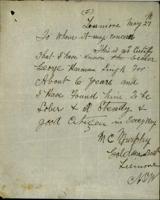 Lismore May 27
To whom it may concern
This is to Certify
that I have known the bearer
George Harman Singh for
About 6 Years and
I have Found him to be
Sober & A Steady &
good Citizen in Every Way
M C Murphy
Lismore
NSW